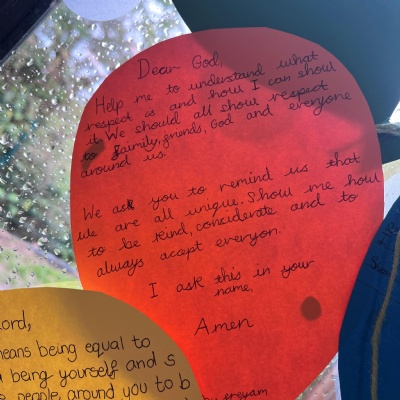 Dear God,
Help me to understand what
respect is and how I can show
it. We should all show respect
to faimily, friends, God and everyone
around us.
We ask you to remind us that
we are all unique. Show me how
to be kind, conciderate and to
always acept everyon.
I ask this in your
name,
Amen
ord,
eans being equal to
being yourself and s
people around you to b